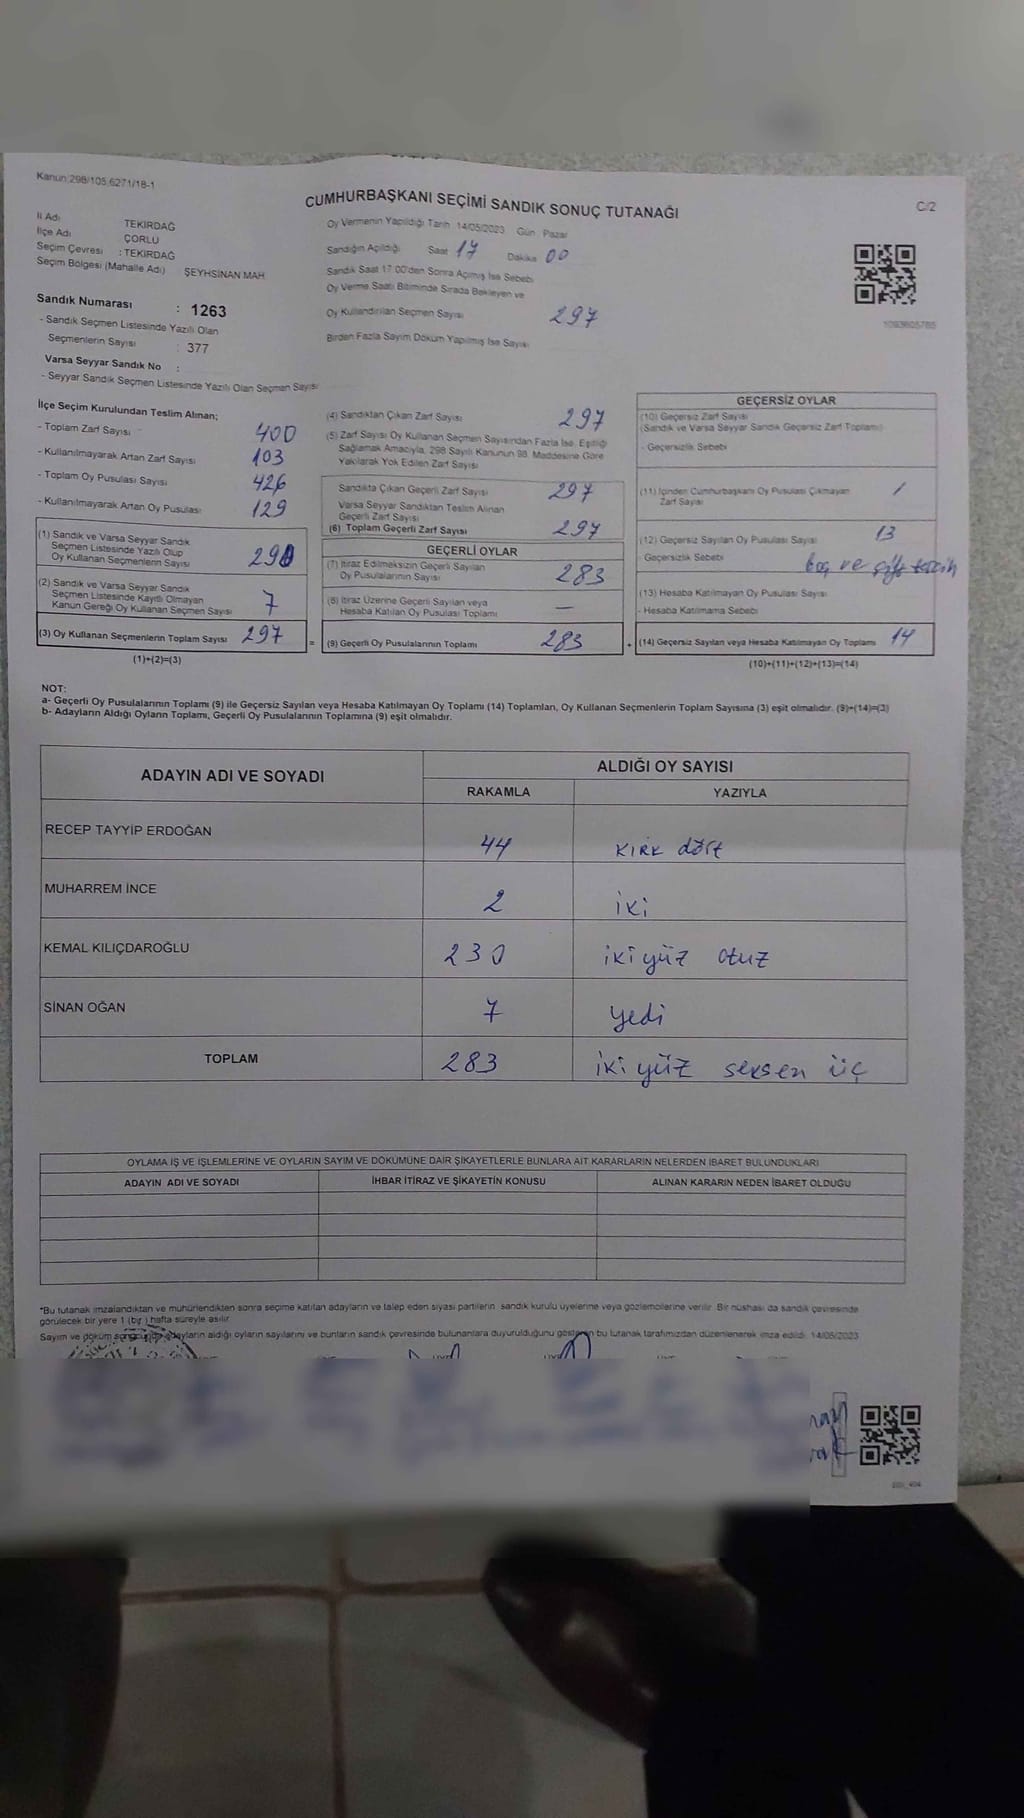 Kanun:298/105,6271/18-1
CUMHURBAŞKANI SEÇİMİ SANDIK SONUÇ TUTANAĞI
C/2
İl Adı TEKİRDAĞ
İlçe Adı ÇORLU
Seçim Çevresi : TEKİRDAĞ
Seçim Bölgesi (Mahalle Adı) ŞEYHSİNAN MAH
Sandık Numarası : 1263
- Sandık Seçmen Listesinde Yazılı Olan
Seçmenlerin Sayısı : 377
Varsa Seyyar Sandık No :
- Seyyar Sandık Seçmen Listesinde Yazılı Olan Seçmen Sayısı
Oy Vermenin Yapıldığı Tarih 14/05/2023 Gün Pazar
Sandığın Açıldığı Saat 17 Dakika 00
Sandık Saat 17:00'den Sonra Açılmış İse Sebebi
Oy Verme Saati Bitiminde Sırada Bekleyen ve
Oy Kullandırılan Seçmen Sayısı 297
Birden Fazla Sayım Döküm Yapılmış İse Sayısı
1093605785
İlçe Seçim Kurulundan Teslim Alınan;
- Toplam Zarf Sayısı 400
- Kullanılmayarak Artan Zarf Sayısı 103
- Toplam Oy Pusulası Sayısı 426
- Kullanılmayarak Artan Oy Pusulası 129
(1) Sandık ve Varsa Seyyar Sandık
Seçmen Listesinde Yazılı Olup
Oy Kullanan Seçmenlerin Sayısı 290
(2) Sandık ve Varsa Seyyar Sandık
Seçmen Listesinde Kayıtlı Olmayan
Kanun Gereği Oy Kullanan Seçmen Sayısı 7
(3) Oy Kullanan Seçmenlerin Toplam Sayısı 297 =
(1)+(2)=(3)
(4) Sandıktan Çıkan Zarf Sayısı 297
(5) Zarf Sayısı Oy Kullanan Seçmen Sayısından Fazla İse, Eşitliği
Sağlamak Amacıyla, 298 Sayılı Kanunun 98. Maddesine Göre
Yakılarak Yok Edilen Zarf Sayısı
Sandıkta Çıkan Geçerli Zarf Sayısı 297
Varsa Seyyar Sandıktan Teslim Alınan
Geçerli Zarf Sayısı
(6) Toplam Geçerli Zarf Sayısı 297
GEÇERLİ OYLAR
(7) İtiraz Edilmeksizin Geçerli Sayılan
Oy Pusulalarının Sayısı 283
(8) İtiraz Üzerine Geçerli Sayılan veya
Hesaba Katılan Oy Pusulası Toplamı —
(9) Geçerli Oy Pusulalarının Toplamı 283 +
GEÇERSİZ OYLAR
(10) Geçersiz Zarf Sayısı
(Sandık ve Varsa Seyyar Sandık Geçersiz Zarf Toplamı)
- Geçersizlik Sebebi
(11) İçinden Cumhurbaşkanı Oy Pusulası Çıkmayan
Zarf Sayısı 1
(12) Geçersiz Sayılan Oy Pusulası Sayısı 13
- Geçersizlik Sebebi boş ve çift tercih
(13) Hesaba Katılmayan Oy Pusulası Sayısı
- Hesaba Katılmama Sebebi
(14) Geçersiz Sayılan veya Hesaba Katılmayan Oy Toplamı 14
(10)+(11)+(12)+(13)=(14)
NOT:
a- Geçerli Oy Pusulalarının Toplamı (9) ile Geçersiz Sayılan veya Hesaba Katılmayan Oy Toplamı (14) Toplamları, Oy Kullanan Seçmenlerin Toplam Sayısına (3) eşit olmalıdır. (9)+(14)=(3)
b- Adayların Aldığı Oyların Toplamı, Geçerli Oy Pusulalarının Toplamına (9) eşit olmalıdır.
ADAYIN ADI VE SOYADI ALDIĞI OY SAYISI
RAKAMLA YAZIYLA
RECEP TAYYİP ERDOĞAN 44 KIRK dört
MUHARREM İNCE 2 iki
KEMAL KILIÇDAROĞLU 230 iki yüz otuz
SİNAN OĞAN 7 yedi
TOPLAM 283 iki yüz seksen üç
OYLAMA İŞ VE İŞLEMLERİNE VE OYLARIN SAYIM VE DÖKÜMÜNE DAİR ŞİKAYETLERLE BUNLARA AİT KARARLARIN NELERDEN İBARET BULUNDUKLARI
ADAYIN ADI VE SOYADI İHBAR İTİRAZ VE ŞİKAYETİN KONUSU ALINAN KARARIN NEDEN İBARET OLDUĞU
*Bu tutanak imzalandıktan ve mühürlendikten sonra seçime katılan adayların ve talep eden siyasi partilerin sandık kurulu üyelerine veya gözlemcilerine verilir. Bir nüshası da sandık çevresinde
görülecek bir yere 1 (bir) hafta süreyle asılır.
Sayım ve döküm sonucunda adayların aldığı oyların sayılarını ve bunların sandık çevresinde bulunanlara duyurulduğunu gösteren bu tutanak tarafımızdan düzenlenerek imza edildi. 14/05/2023